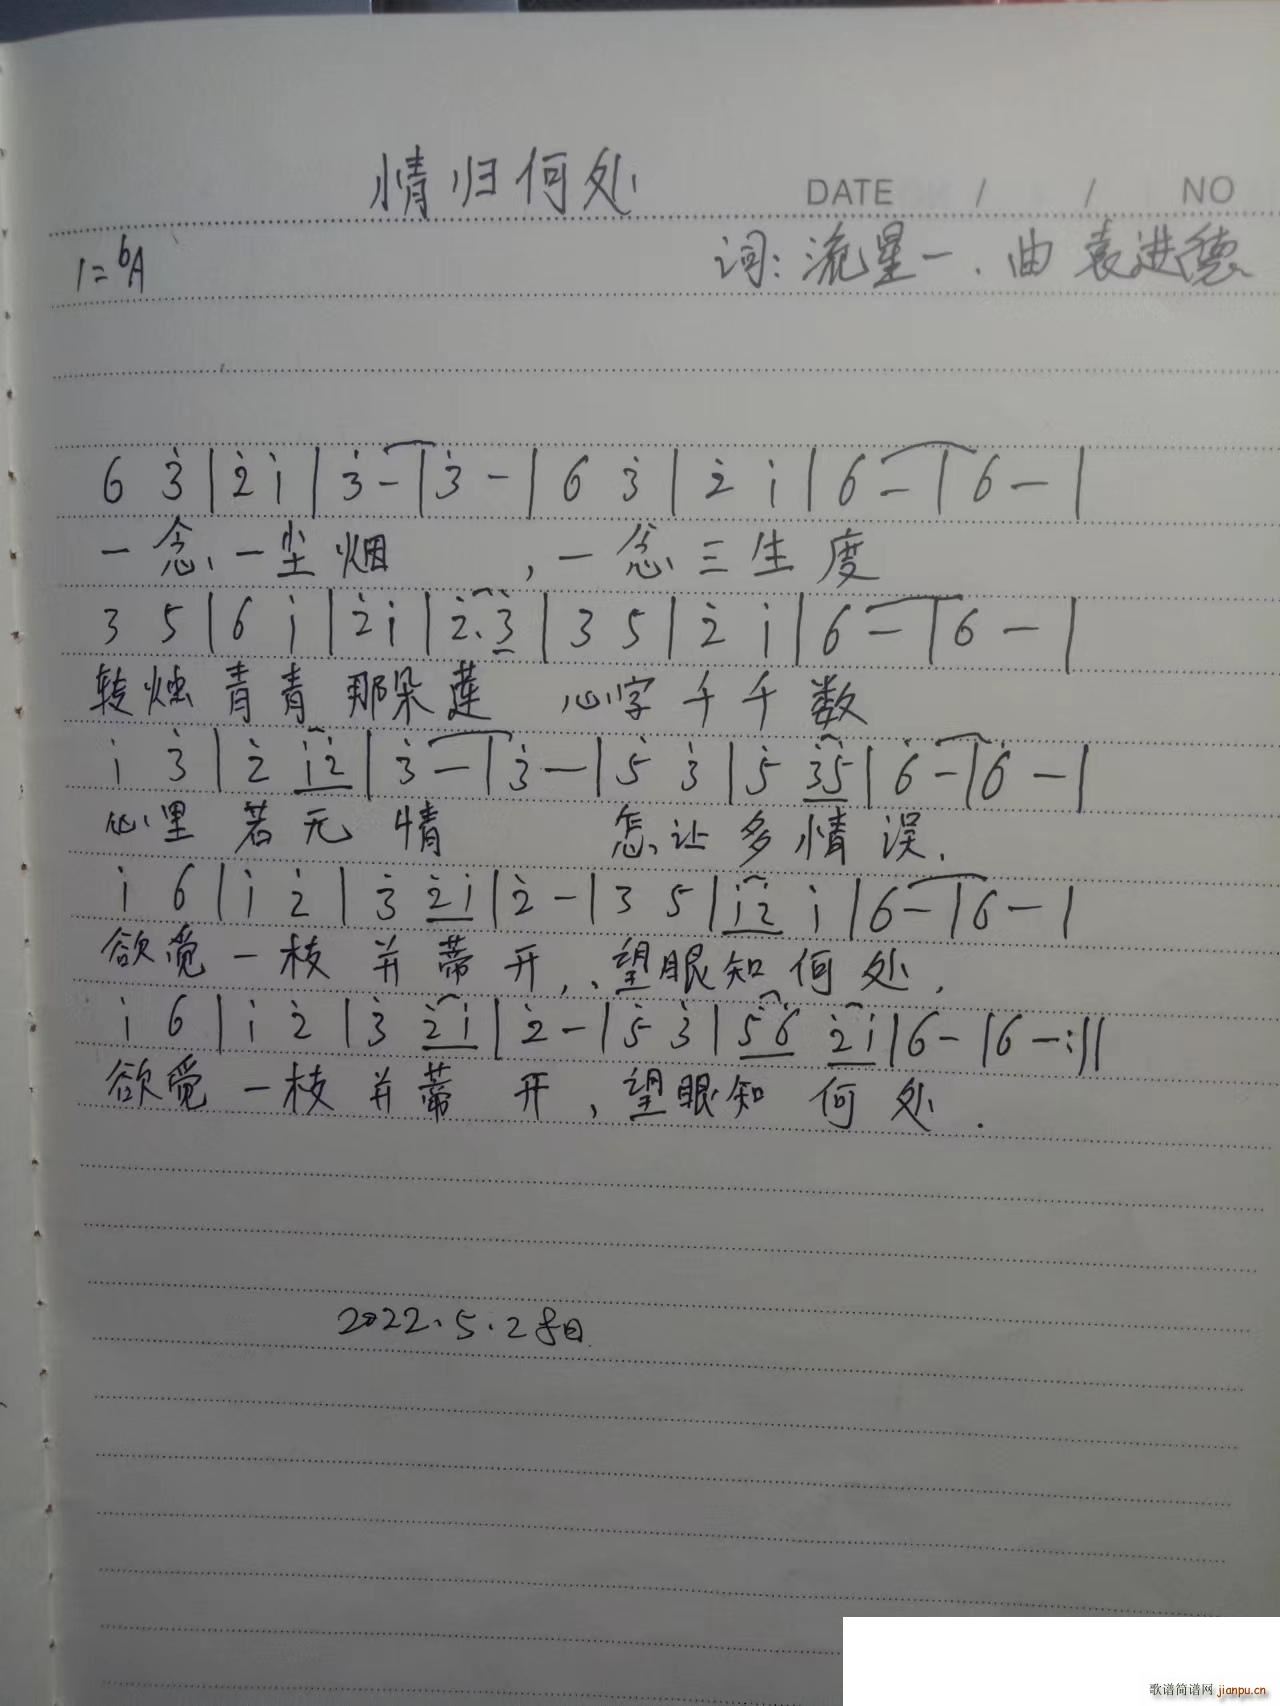 情归何处
DATE / / NO
1=♭A
词:流星一.曲 袁进德
6 3̇ | 2̇ 1̇ | 3̇ - | 3̇ - | 6 3̇ | 2̇ 1̇ | 6 - | 6 - |
一念一尘烟 ,一念三生度
3 5 | 6 1̇ | 2̇ 1̇ | 2̇. 3̇ | 3 5 | 2̇ 1̇ | 6 - | 6 - |
转烛青青那朵莲 心字千千数
1̇ 3̇ | 2̇ 1̇2̇ | 3̇ - | 3̇ - | 5̇ 3̇ | 5̇ 3̇5̇ | 6̇ - | 6̇ - |
心里若无情 怎让多情误.
1̇ 6 | 1̇ 2̇ | 3̇ 2̇1̇ | 2̇ - | 3 5 | 1̇2̇ 1̇ | 6 - | 6 - |
欲觉一枝并蒂开,望眼知何处.
1̇ 6 | 1̇ 2̇ | 3̇ 2̇1̇ | 2̇ - | 5̇ 3̇ | 5̇6̇ 2̇1̇ | 6 - | 6 - :||
欲觉一枝并蒂开,望眼知何处.
2022.5.2
歌谱简谱网 jianpu.cn